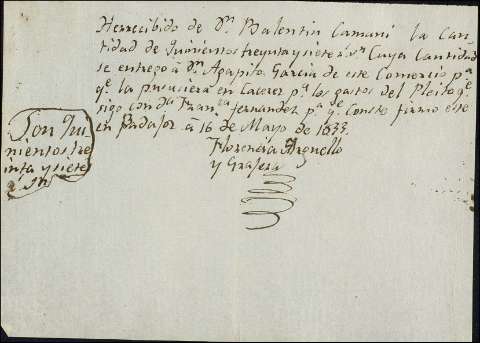 Herrecibido de Dn Balentin Camani la Can-
tidad de Quinientos treynta y siete rs vn Cuya Cantidad
se entrego á Dn Agapito Garcia de este Comercio pa
qe la pususiera en Caceres pa los gastos del Pleito qe
sigo con Da Franca fernandez pa qe Conste firmo este
en Badajoz á 16 de Mayo de 1833.
Florencia Arguello
y Grajera
Son Qui
nientos tre
inta y siete
rs vn